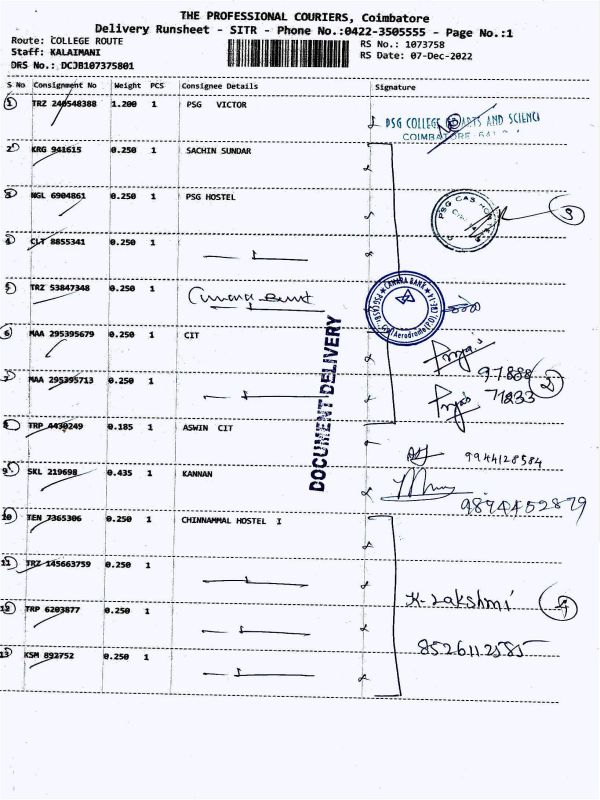 THE PROFESSIONAL COURIERS, Coimbatore
Delivery Runsheet - SITR - Phone No.:0422-3505555 - Page No.:1
Route: COLLEGE ROUTE
RS No.: 1073758
Staff: KALAIMANI
RS Date: 07-Dec-2022
DRS No.: DCJB107375801
S No Consignment No Weight PCS Consignee Details Signature
1 TRZ 240548388 1.200 1 PSG VICTOR
PSG COLLEGE OF ARTS AND SCIENC
COIMBATORE
2 KRG 941615 0.250 1 SACHIN SUNDAR
3 NGL 6904861 0.250 1 PSG HOSTEL
PSG CAS
3
4 CLT 8855341 0.250 1
5 TRZ 53847348 0.250 1
CANARA BANK
6 MAA 295395679 0.250 1 CIT
97888
2
7 MAA 295395713 0.250 1
71233
DOCUMENT DELIVERY
8 TRP 4430249 0.185 1 ASWIN CIT
9944128584
9 SKL 219698 0.435 1 KANNAN
9894452879
10 TEN 7365306 0.250 1 CHINNAMMAL HOSTEL I
11 TRZ 145663759 0.250 1
K. Lakshmi
4
12 TRP 6203877 0.250 1
8526112585
13 KSM 892752 0.250 1